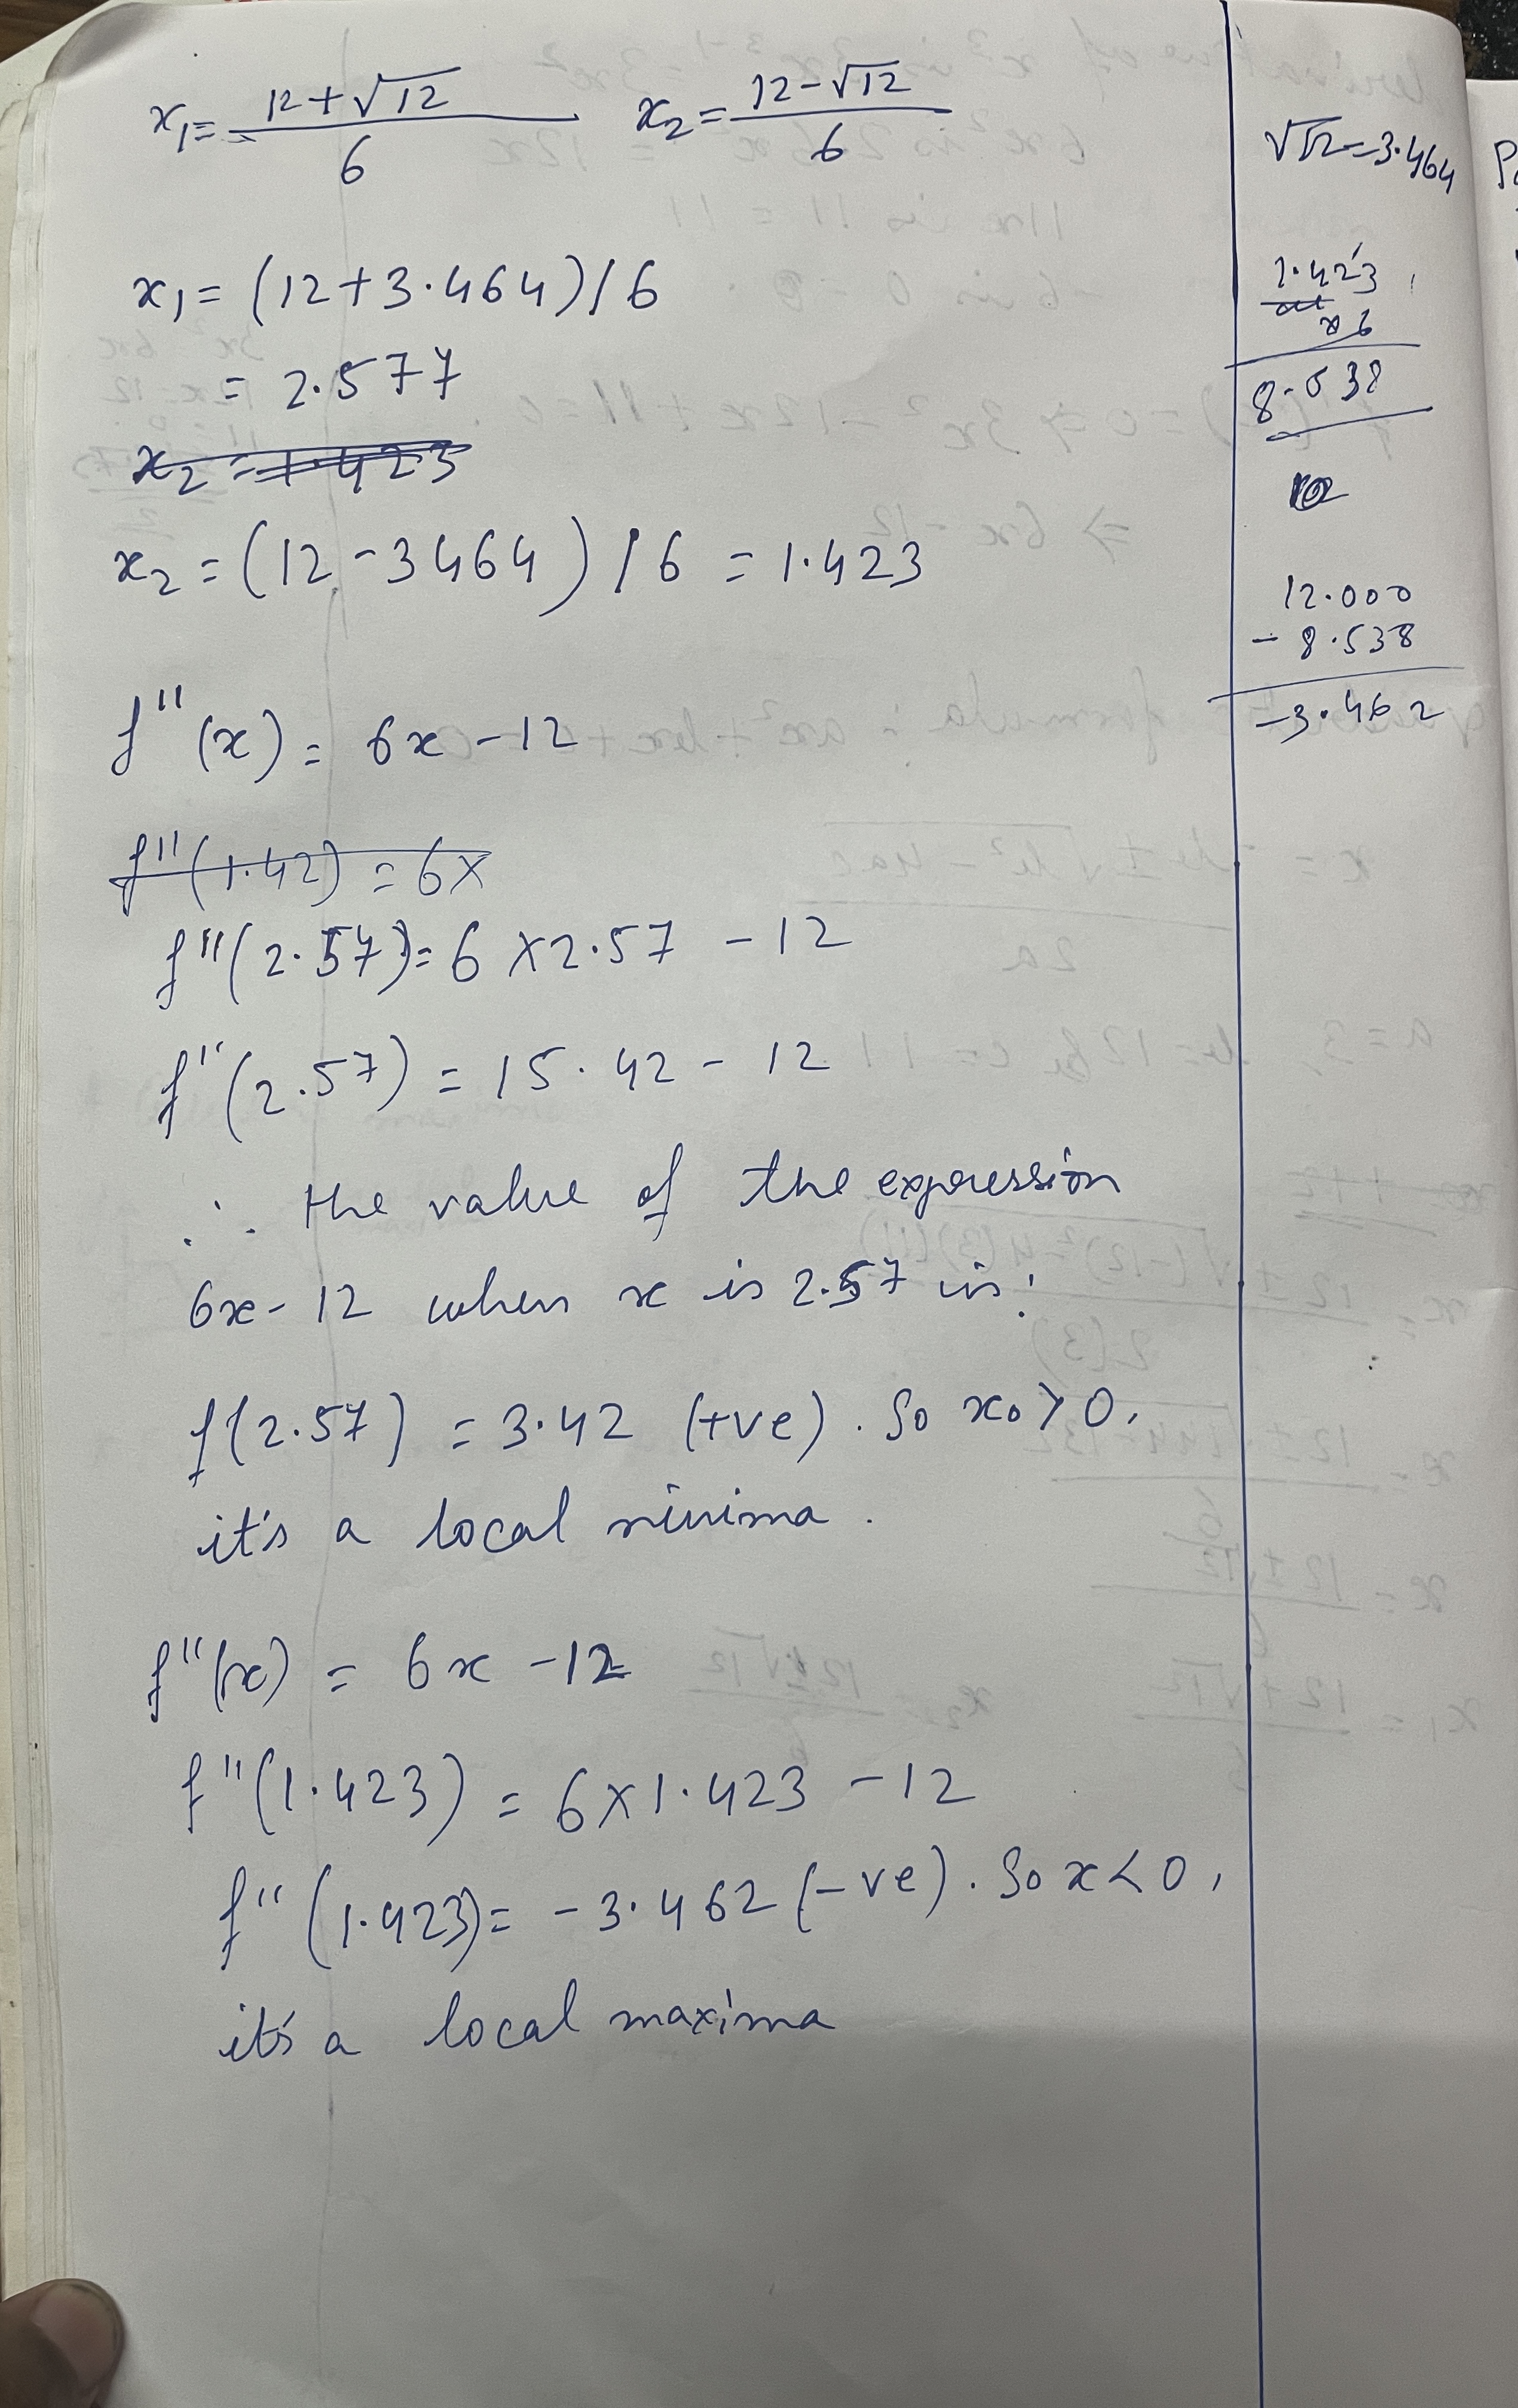 x₁ = (12+√12)/6 x₂ = (12-√12)/6
x₁ = (12+3.464)/6
= 2.577
x₂ = 1.423
x₂ = (12-3464)/6 = 1.423
f''(x) = 6x-12
f''(1.42) = 6x
f''(2.57) = 6×2.57 -12
f''(2.57) = 15.42 - 12
∴ the value of the expression
6x-12 when x is 2.57 is:
f(2.57) = 3.42 (+ve). So x₀>0,
it's a local minima.
f''(x) = 6x-12
f''(1.423) = 6×1.423 -12
f''(1.423) = -3.462 (-ve). So x<0,
it's a local maxima
√12=3.464
1.423
×6
8.538
12.000
- 8.538
-3.462